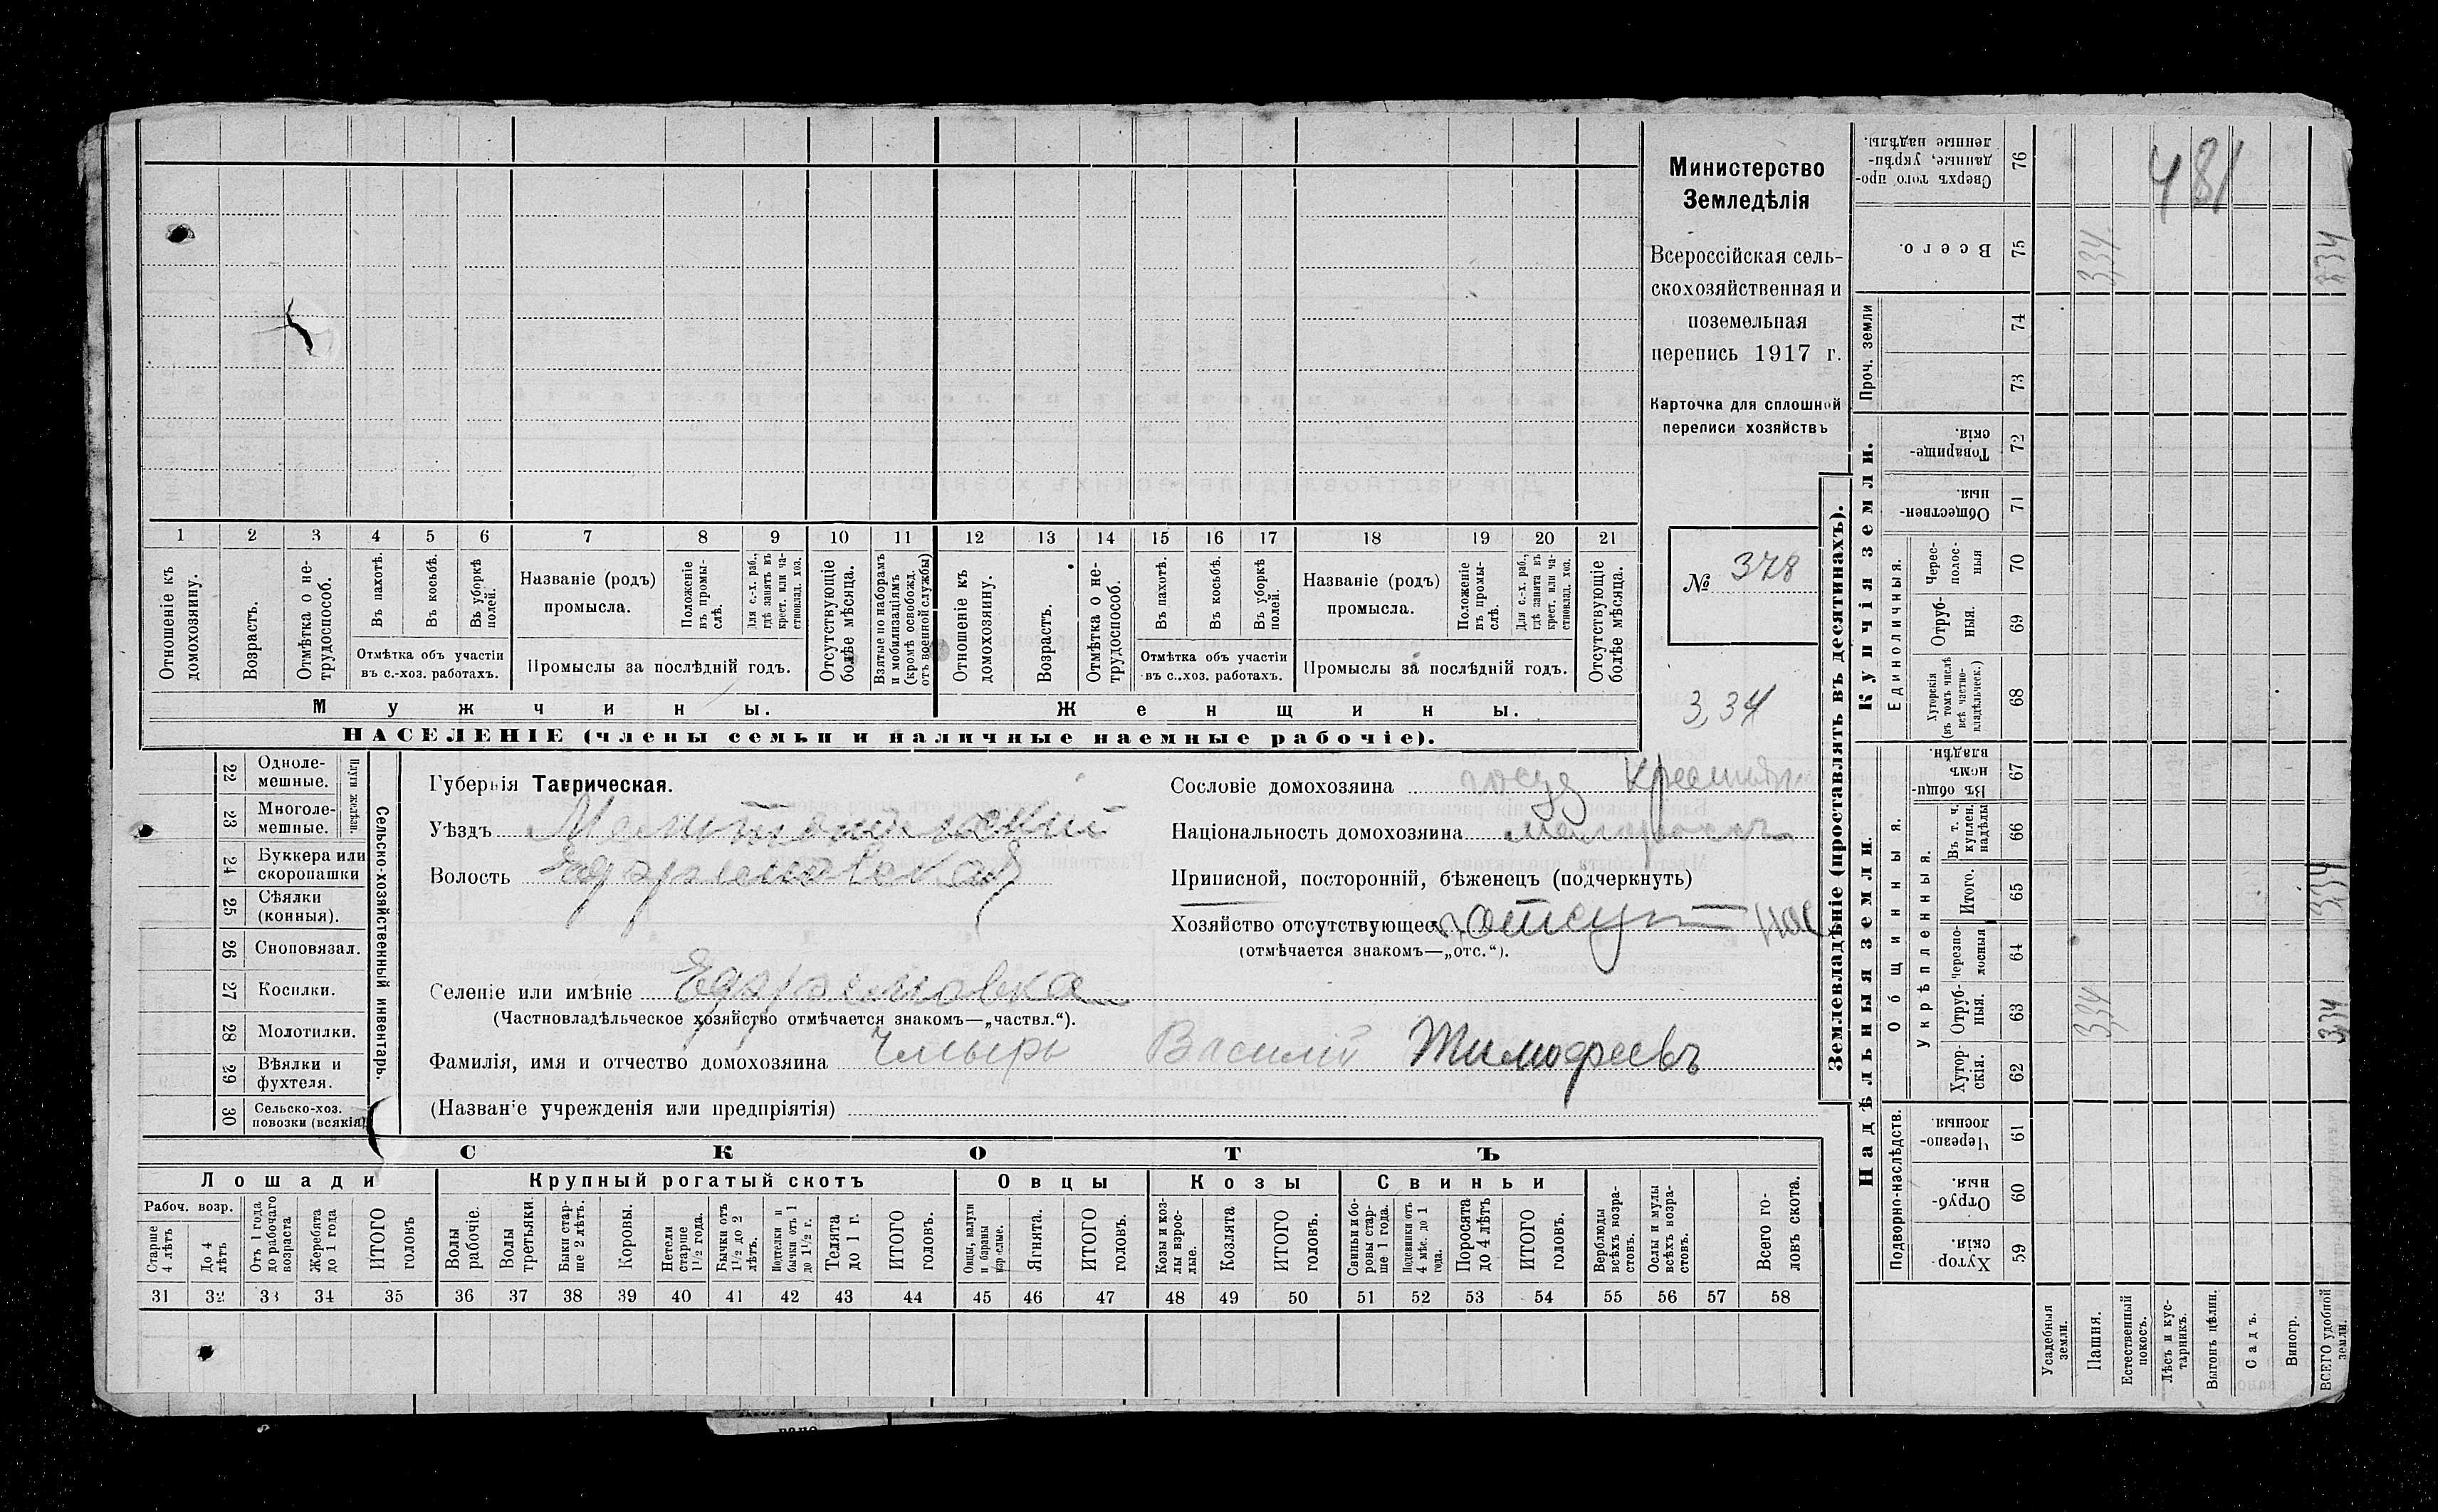 Министерство
Земледѣлія
Всероссійская сель-
скохозяйственная и
поземельная
перепись 1917 г.
Карточка для сплошной
переписи хозяйствъ
№ 378
3,34
481
1 2 3 4 5 6 7 8 9 10 11 12 13 14 15 16 17 18 19 20 21
Отношеніе къ домохозяину.
Возрастъ.
Отмѣтка о не-трудоспособ.
Въ пахотѣ.
Въ косьбѣ.
Въ уборкѣ полей.
Отмѣтка объ участіи
въ с.-хоз. работахъ.
Названіе (родъ)
промысла.
Положеніе въ промы-слѣ.
Для с.-х. раб., гдѣ занятъ въ крест. или ча-стновлад. хоз.
Промыслы за послѣдній годъ.
Отсутствующіе болѣе мѣсяца.
Взятые по наборамъ и мобилизаціямъ (кромѣ освобожд. отъ военной службы)
Отношеніе къ домохозяину.
Возрастъ.
Отмѣтка о не-трудоспособ.
Въ пахотѣ.
Въ косьбѣ.
Въ уборкѣ полей.
Отмѣтка объ участіи
въ с.-хоз. работахъ.
Названіе (родъ)
промысла.
Положеніе въ промы-слѣ.
Для с.-х. раб., гдѣ занята въ крест. или ча-стновлад. хоз.
Промыслы за послѣдній годъ.
Отсутствующіе болѣе мѣсяца.
Мужчины.
Женщины.
НАСЕЛЕНІЕ (члены семьи и наличные наемные рабочіе).
Сельско-хозяйственный инвентарь.
Плуги желѣзн.
22 Одноле-мешные.
23 Многоле-мешные.
24 Буккера или скоропашки
25 Сѣялки (конныя).
26 Сноповязал.
27 Косилки.
28 Молотилки.
29 Вѣялки и фухтеля.
30 Сельско-хоз. повозки (всякія)
Губернія Таврическая.
Уѣздъ Мелитопольскій
Волость Ефремовская
Селеніе или имѣніе Ефремовка
(Частновладѣльческое хозяйство отмѣчается знакомъ—„частвл.“).
Фамилія, имя и отчество домохозяина Чмырь Василій Тимофеевъ
(Названіе учрежденія или предпріятія)
Сословіе домохозяина госуд крестьян
Національность домохозяина малороссъ
Приписной, посторонній, бѣженецъ (подчеркнуть)
Хозяйство отсутствующее отсут
(отмѣчается знакомъ—„отс.“).
СКОТЪ
Лошади
Крупный рогатый скотъ
Овцы
Козы
Свиньи
Рабоч. возр.
Старше 4 лѣтъ
До 4 лѣтъ
Отъ 1 года до рабочаго возраста
Жеребята до 1 года
ИТОГО головъ
Волы рабочіе.
Волы третьяки.
Быки стар-ше 2 лѣтъ.
Коровы.
Нетели старше 1½ года.
Бычки отъ 1½ до 2 лѣтъ.
Подтелки и бычки отъ 1 до 1½ г.
Телята до 1 г.
ИТОГО головъ.
Овцы, валухи и бараны взрослые.
Ягнята.
ИТОГО головъ.
Козы и коз-лы взрос-лые.
Козлята
ИТОГО головъ.
Свиньи и бо-ровы стар-ше 1 года.
Подсвинки отъ 4 мѣс. до 1 года.
Поросята до 4 лѣтъ
ИТОГО головъ.
Верблюды всѣхъ возра-стовъ.
Ослы и мулы всѣхъ возра-стовъ.
Всего го-ловъ скота.
31 32 33 34 35 36 37 38 39 40 41 42 43 44 45 46 47 48 49 50 51 52 53 54 55 56 57 58
Землевладѣніе (проставлять въ десятинахъ).
Проч. земли
Купчія земли.
Надѣльныя земли.
Единоличныя.
Общинныя.
Укрѣпленныя.
Подворно-наслѣдств.
Сверхъ того про-данные, укрѣп-ленные надѣлы. 76
Всего. 75 334 334
74
73
Товарище-скія. 72
Обществен-ныя. 71
Черес-полос-ныя 70
Отруб-ныя. 69
Хуторскія (въ томъ числѣ всѣ частно-владѣльческ.) 68
Въ общи-номъ владѣн. 67
Въ т. ч. куплен. надѣлы 66
Итого. 65 334
Черезпо-лосныя 64
Отруб-ныя. 63 334 334
Хутор-скія. 62
Черезпо-лосныя 61
Отруб-ныя. 60
Хутор-скія. 59
Усадебныя земли.
Пашня.
Естественный покосъ.
Лѣсъ и кус-тарникъ.
Выгонъ цѣлин.
Садъ.
Виногр.
ВСЕГО удобной земли.